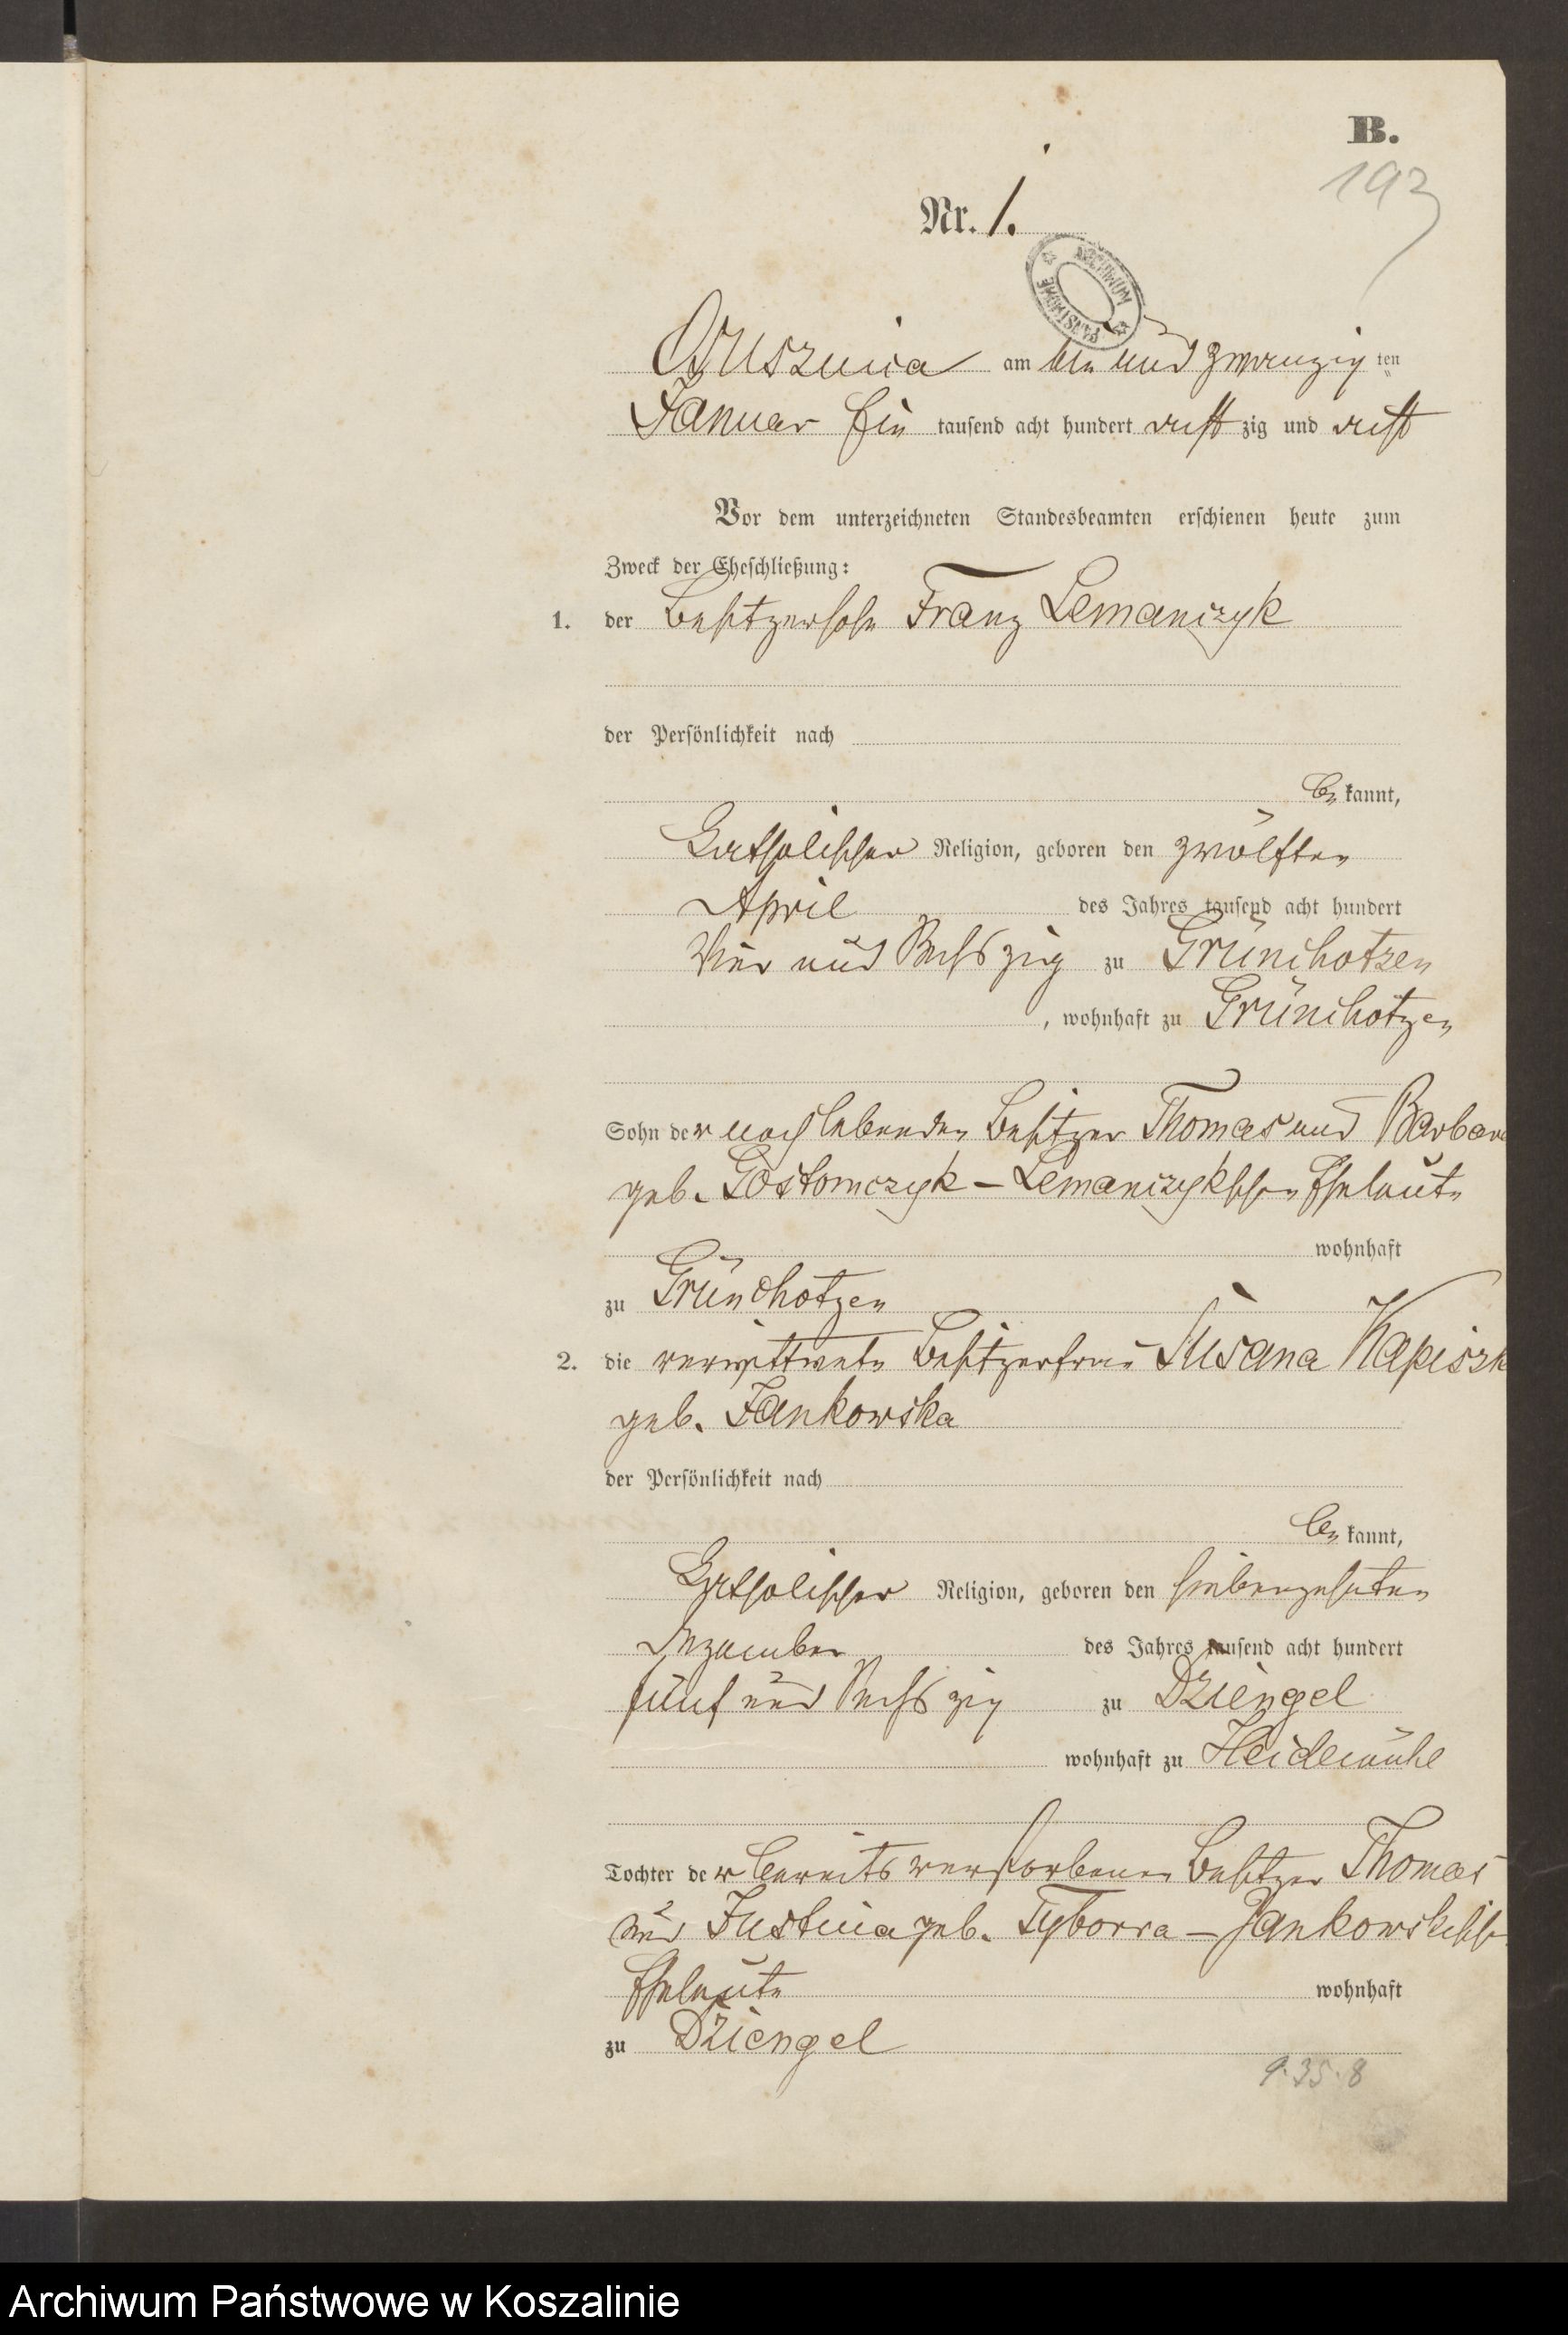 B.
193
Nr. 1.
ARCHIWUM PAŃSTWOWE
am ein und zwanzig ten
Januar Ein tausend acht hundert acht zig und acht
Vor dem unterzeichneten Standesbeamten erschienen heute zum
Zweck der Eheschließung:
1. der Besitzersohn Franz Lemanczyk
der Persönlichkeit nach
be kannt,
Katholischer Religion, geboren den zwölften
April des Jahres tausend acht hundert
Vier und Sechszig zu Grünchotzen
, wohnhaft zu Grünchotzen
Sohn der noch lebenden Besitzer Thomas und Barbara
geb. Gostomczyk – Lemanczykschen Eheleute
wohnhaft
zu Grünchotzen
2. die verwittwete Besitzerfrau Susana Kapiszk
geb. Jankowska
der Persönlichkeit nach
be kannt,
Katholischer Religion, geboren den siebenzehnten
Dezember des Jahres tausend acht hundert
fünf und Sechszig zu Dziengel
wohnhaft zu Heidemühl
Tochter der bereits verstorbenen Besitzer Thomas
und Justina geb. Tyborra – Jankowskischen
Eheleute wohnhaft
zu Dziengel
9.35.8
Archiwum Państwowe w Koszalinie